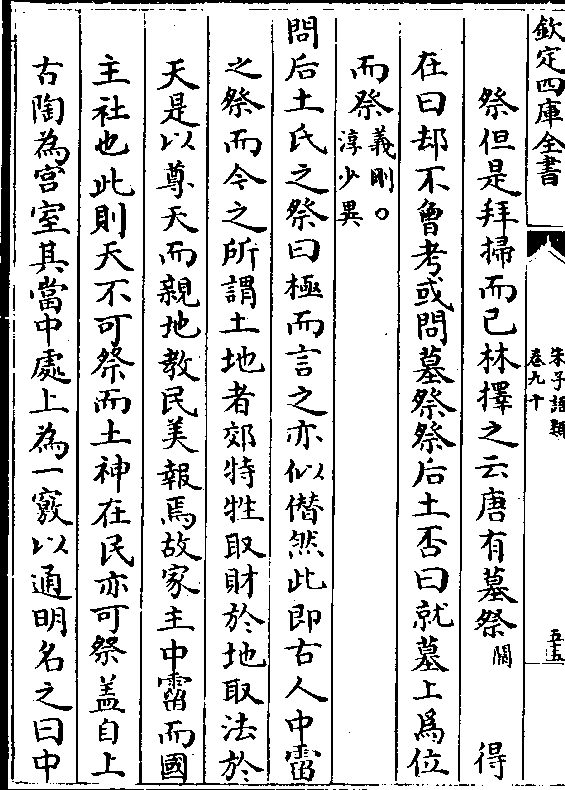 欽定四庫全書
朱子語類
卷九十
五十五
祭但是拜掃而已林擇之云唐有墓祭闕 得
在曰却不曾考或問墓祭祭后土否曰就墓上為位
而祭義剛。淳少異
問后土氏之祭曰極而言之亦似僭然此即古人中霤
之祭而今之所謂土地者郊特牲取財於地取法於
天是以尊天而親地教民美報焉故家主中霤而國
主社也此則天不可祭而土神在民亦可祭盖自上
古陶為宫室其當中處上為一竅以通明名之曰中